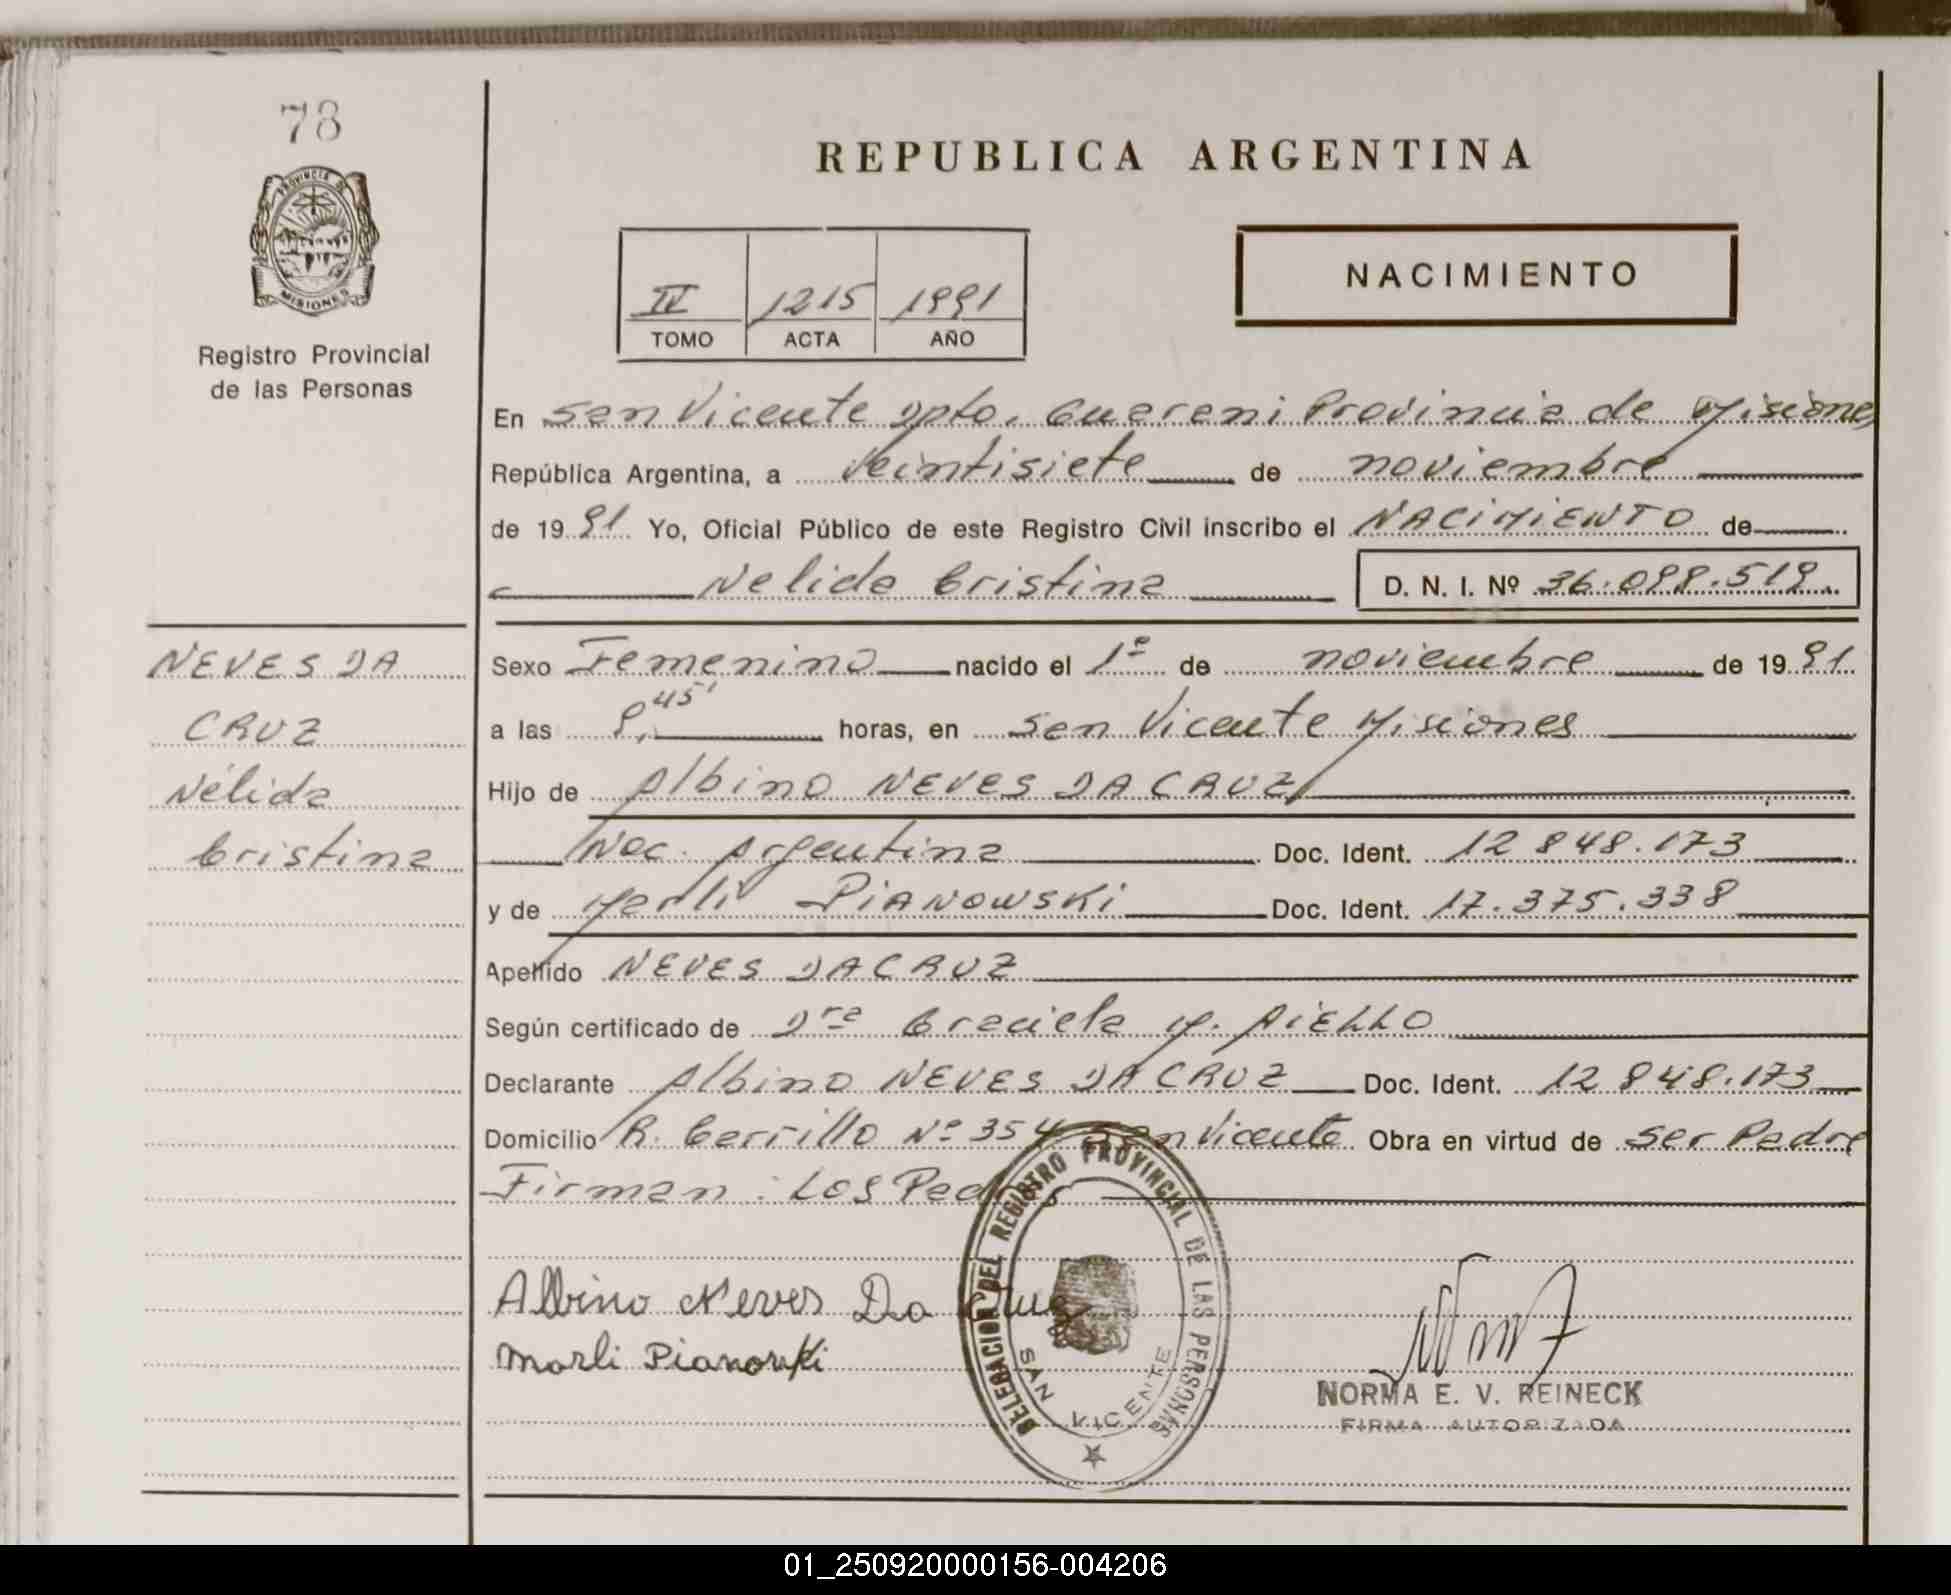 78
PROVINCIA DE
MISIONES
Registro Provincial
de las Personas
REPUBLICA ARGENTINA
NACIMIENTO
IV 1215 1991
TOMO ACTA AÑO
En San Vicente Dpto. Guarani Provincia de Misiones
República Argentina, a veintisiete de noviembre
de 1991 Yo, Oficial Público de este Registro Civil inscribo el NACIMIENTO de
Nelida Cristina D. N. I. Nº 36.098.519.
NEVES DA
CRUZ
Nélida
Cristina
Sexo Femenino nacido el 1º de noviembre de 1991
a las 8,45' horas, en San Vicente Misiones
Hijo de Albino NEVES DA CRUZ
Nac. Argentina Doc. Ident. 12 848.173
y de Marli PIANOWSKI Doc. Ident. 17.375.338
Apellido NEVES DA CRUZ
Según certificado de Dra Graciela M. AIELLO
Declarante Albino NEVES DA CRUZ Doc. Ident. 12 848.173
Domicilio R. Carrillo Nº 354 San Vicente Obra en virtud de ser Padre
Firman: Los Padres
Albino Neves Da Cruz
Marli Pianowski
DELEGACION DEL REGISTRO PROVINCIAL DE LAS PERSONAS
SAN VICENTE
NORMA E. V. REINECK
FIRMA AUTORIZADA
01_250920000156-004206